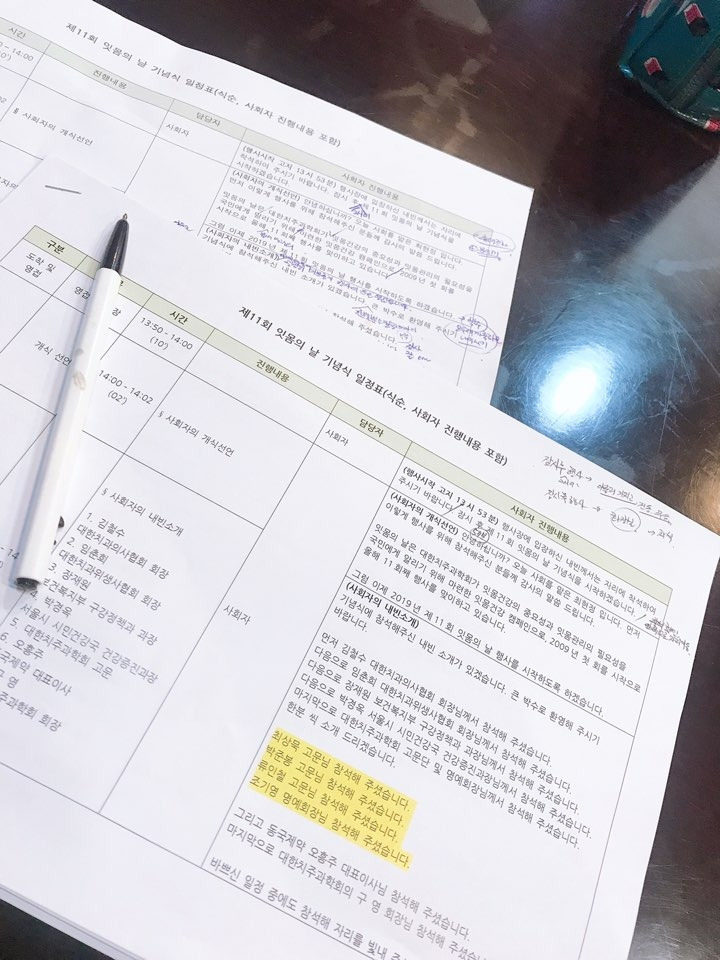 제11회 잇몸의 날 기념식 일정표(식순, 사회자 진행내용 포함)
시간
진행내용
담당자
사회자 진행내용
- 14:00
(10')
§ 사회자의 개식선언
사회자
(행사시작 고지 13시 53분) 행사장에 입장하신 내빈께서는 자리에
착석하여 주시기 바랍니다. 잠시 후 제 11회 잇몸의 날 기념식을
시작하겠습니다.
(사회자의 개식선언) 안녕하십니까? 오늘 사회를 맡은 최현정 입니다.
먼저 이렇게 행사를 위해 참석해주신 분들께 감사의 말씀 드립니다.
잇몸의 날은 대한치주과학회가 잇몸건강의 중요성과 잇몸관리의 필요성을
국민에게 알리기 위해 마련한 잇몸건강 캠페인으로, 2009년 첫 회를
시작으로 올해 11회째 행사를 맞이하고 있습니다.
그럼 이제 2019년 제 11회 잇몸의 날 행사를 시작하도록 하겠습니다.
(사회자의 내빈소개)
기념식에 참석해주신 내빈 소개가 있겠습니다. 큰 박수로 환영해 주시기
참석해 주셨습니다.
제11회 잇몸의 날 기념식 일정표(식순, 사회자 진행내용 포함)
구분
시간
진행내용
담당자
사회자 진행내용
도착 및
영접
영접
13:50 - 14:00
(10')
개식 선언
14:00 - 14:02
(02')
§ 사회자의 개식선언
사회자
(행사시작 고지 13시 53분) 행사장에 입장하신 내빈께서는 자리에 착석하여
주시기 바랍니다. 잠시 후 제 11회 잇몸의 날 기념식을 시작하겠습니다.
(사회자의 개식선언) 안녕하십니까? 오늘 사회를 맡은 최현정 입니다. 먼저
이렇게 행사를 위해 참석해주신 분들께 감사의 말씀 드립니다.
잇몸의 날은 대한치주과학회가 잇몸건강의 중요성과 잇몸관리의 필요성을
국민에게 알리기 위해 마련한 잇몸건강 캠페인으로, 2009년 첫 회를 시작으로
올해 11회째 행사를 맞이하고 있습니다.
그럼 이제 2019년 제 11회 잇몸의 날 행사를 시작하도록 하겠습니다.
§ 사회자의 내빈소개
1. 김철수
대한치과의사협회 회장
2. 임춘희
대한치과위생사협회 회장
3. 장재원
보건복지부 구강정책과 과장
4. 박경옥
서울시 시민건강국 건강증진과장
5. 대한치주과학회 고문
6. 오흥주
동국제약 대표이사
구 영
대한치주과학회 회장
사회자
(사회자의 내빈소개)
기념식에 참석해주신 내빈 소개가 있겠습니다. 큰 박수로 환영해 주시기
바랍니다.
먼저 김철수 대한치과의사협회 회장님께서 참석해 주셨습니다.
다음으로 임춘희 대한치과위생사협회 회장님께서 참석해 주셨습니다.
다음으로 장재원 보건복지부 구강정책과 과장님께서 참석해 주셨습니다.
다음으로 박경옥 서울시 시민건강국 건강증진과장님께서 참석해 주셨습니다.
마지막으로 대한치주과학회 고문단 및 명예회장님께서 참석해 주셨습니다.
한분 씩 소개 드리겠습니다.
최상묵 고문님 참석해 주셨습니다.
박준봉 고문님 참석해 주셨습니다.
류인철 고문님 참석해 주셨습니다.
조기영 명예회장님 참석해 주셨습니다.
그리고 동국제약 오흥주 대표이사님 참석해 주셨습니다.
마지막으로 대한치주과학회의 구 영 회장님 참석해 주셨습니다.
바쁘신 일정 중에도 참석해 자리를 빛내